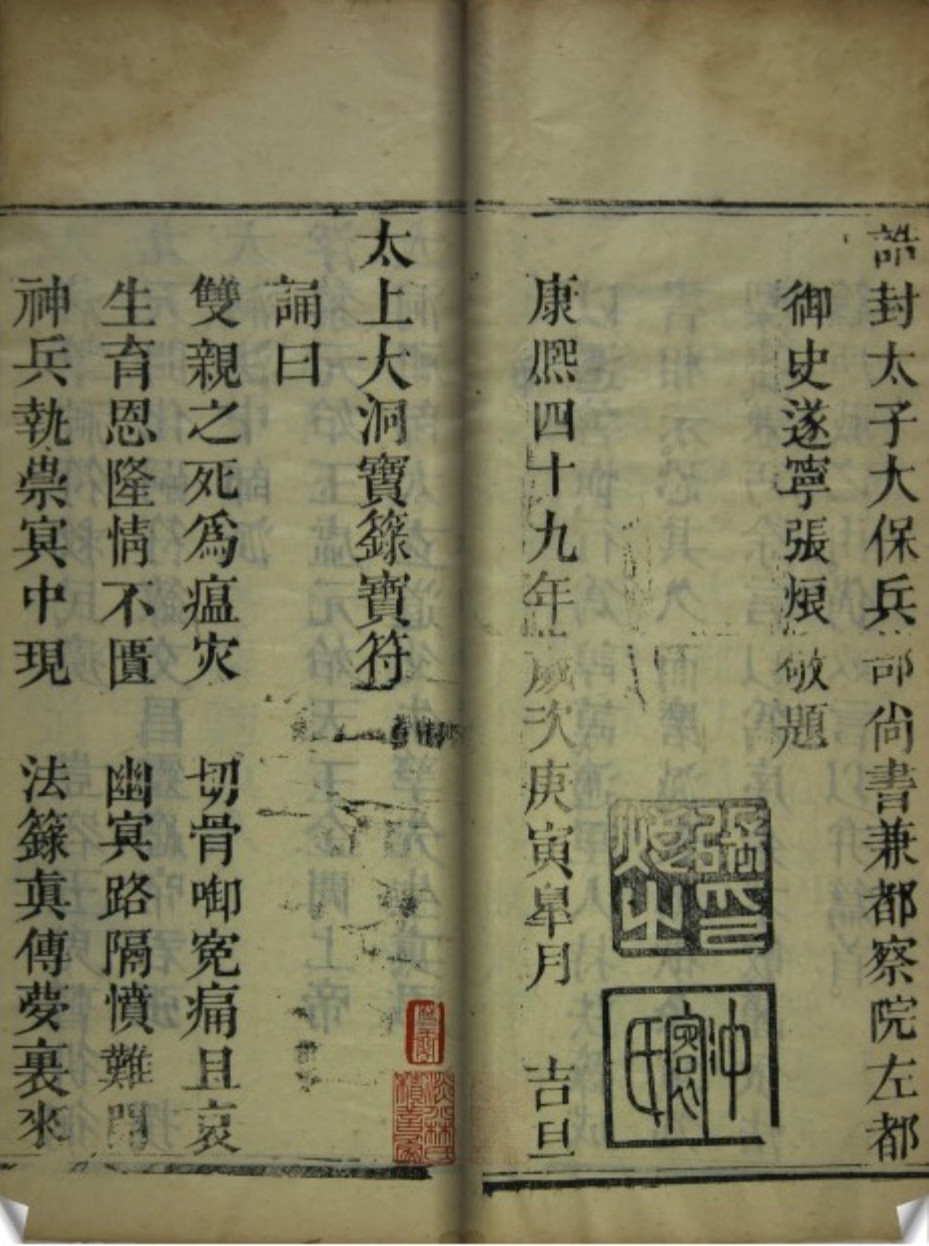 誥封太子太保兵部尚書兼都察院左都
御史遂寧張烺敬題
張烺之印
沖寰氏
康熙四十九年歲次庚寅皐月 吉旦
太上大洞寶籙寶符
誦曰
雙親之死爲瘟灾 切骨啣寃痛且哀
生育恩隆情不匱 幽冥路隔憤難開
神兵執祟冥中現 法籙真傳夢裏來